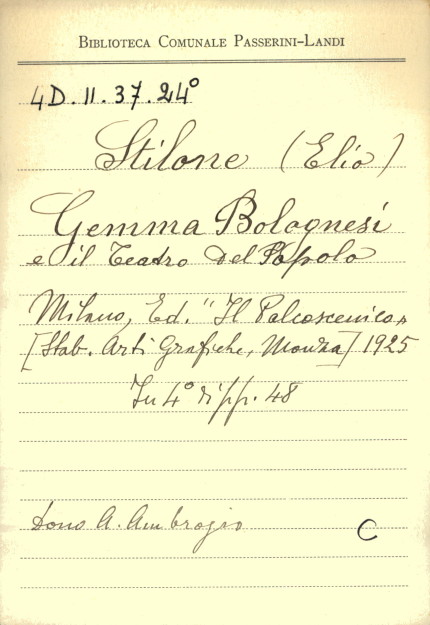 BIBLIOTECA COMUNALE PASSERINI-LANDI
4D.II.37.24°
Stilone (Elio)
Gemma Bolognesi
e il Teatro del Popolo
Milano, Ed. "Il Palcoscenico"
[Stab. Arti Grafiche, Monza] 1925
In 4° di pp. 48
Dono A. Ambrogio
C